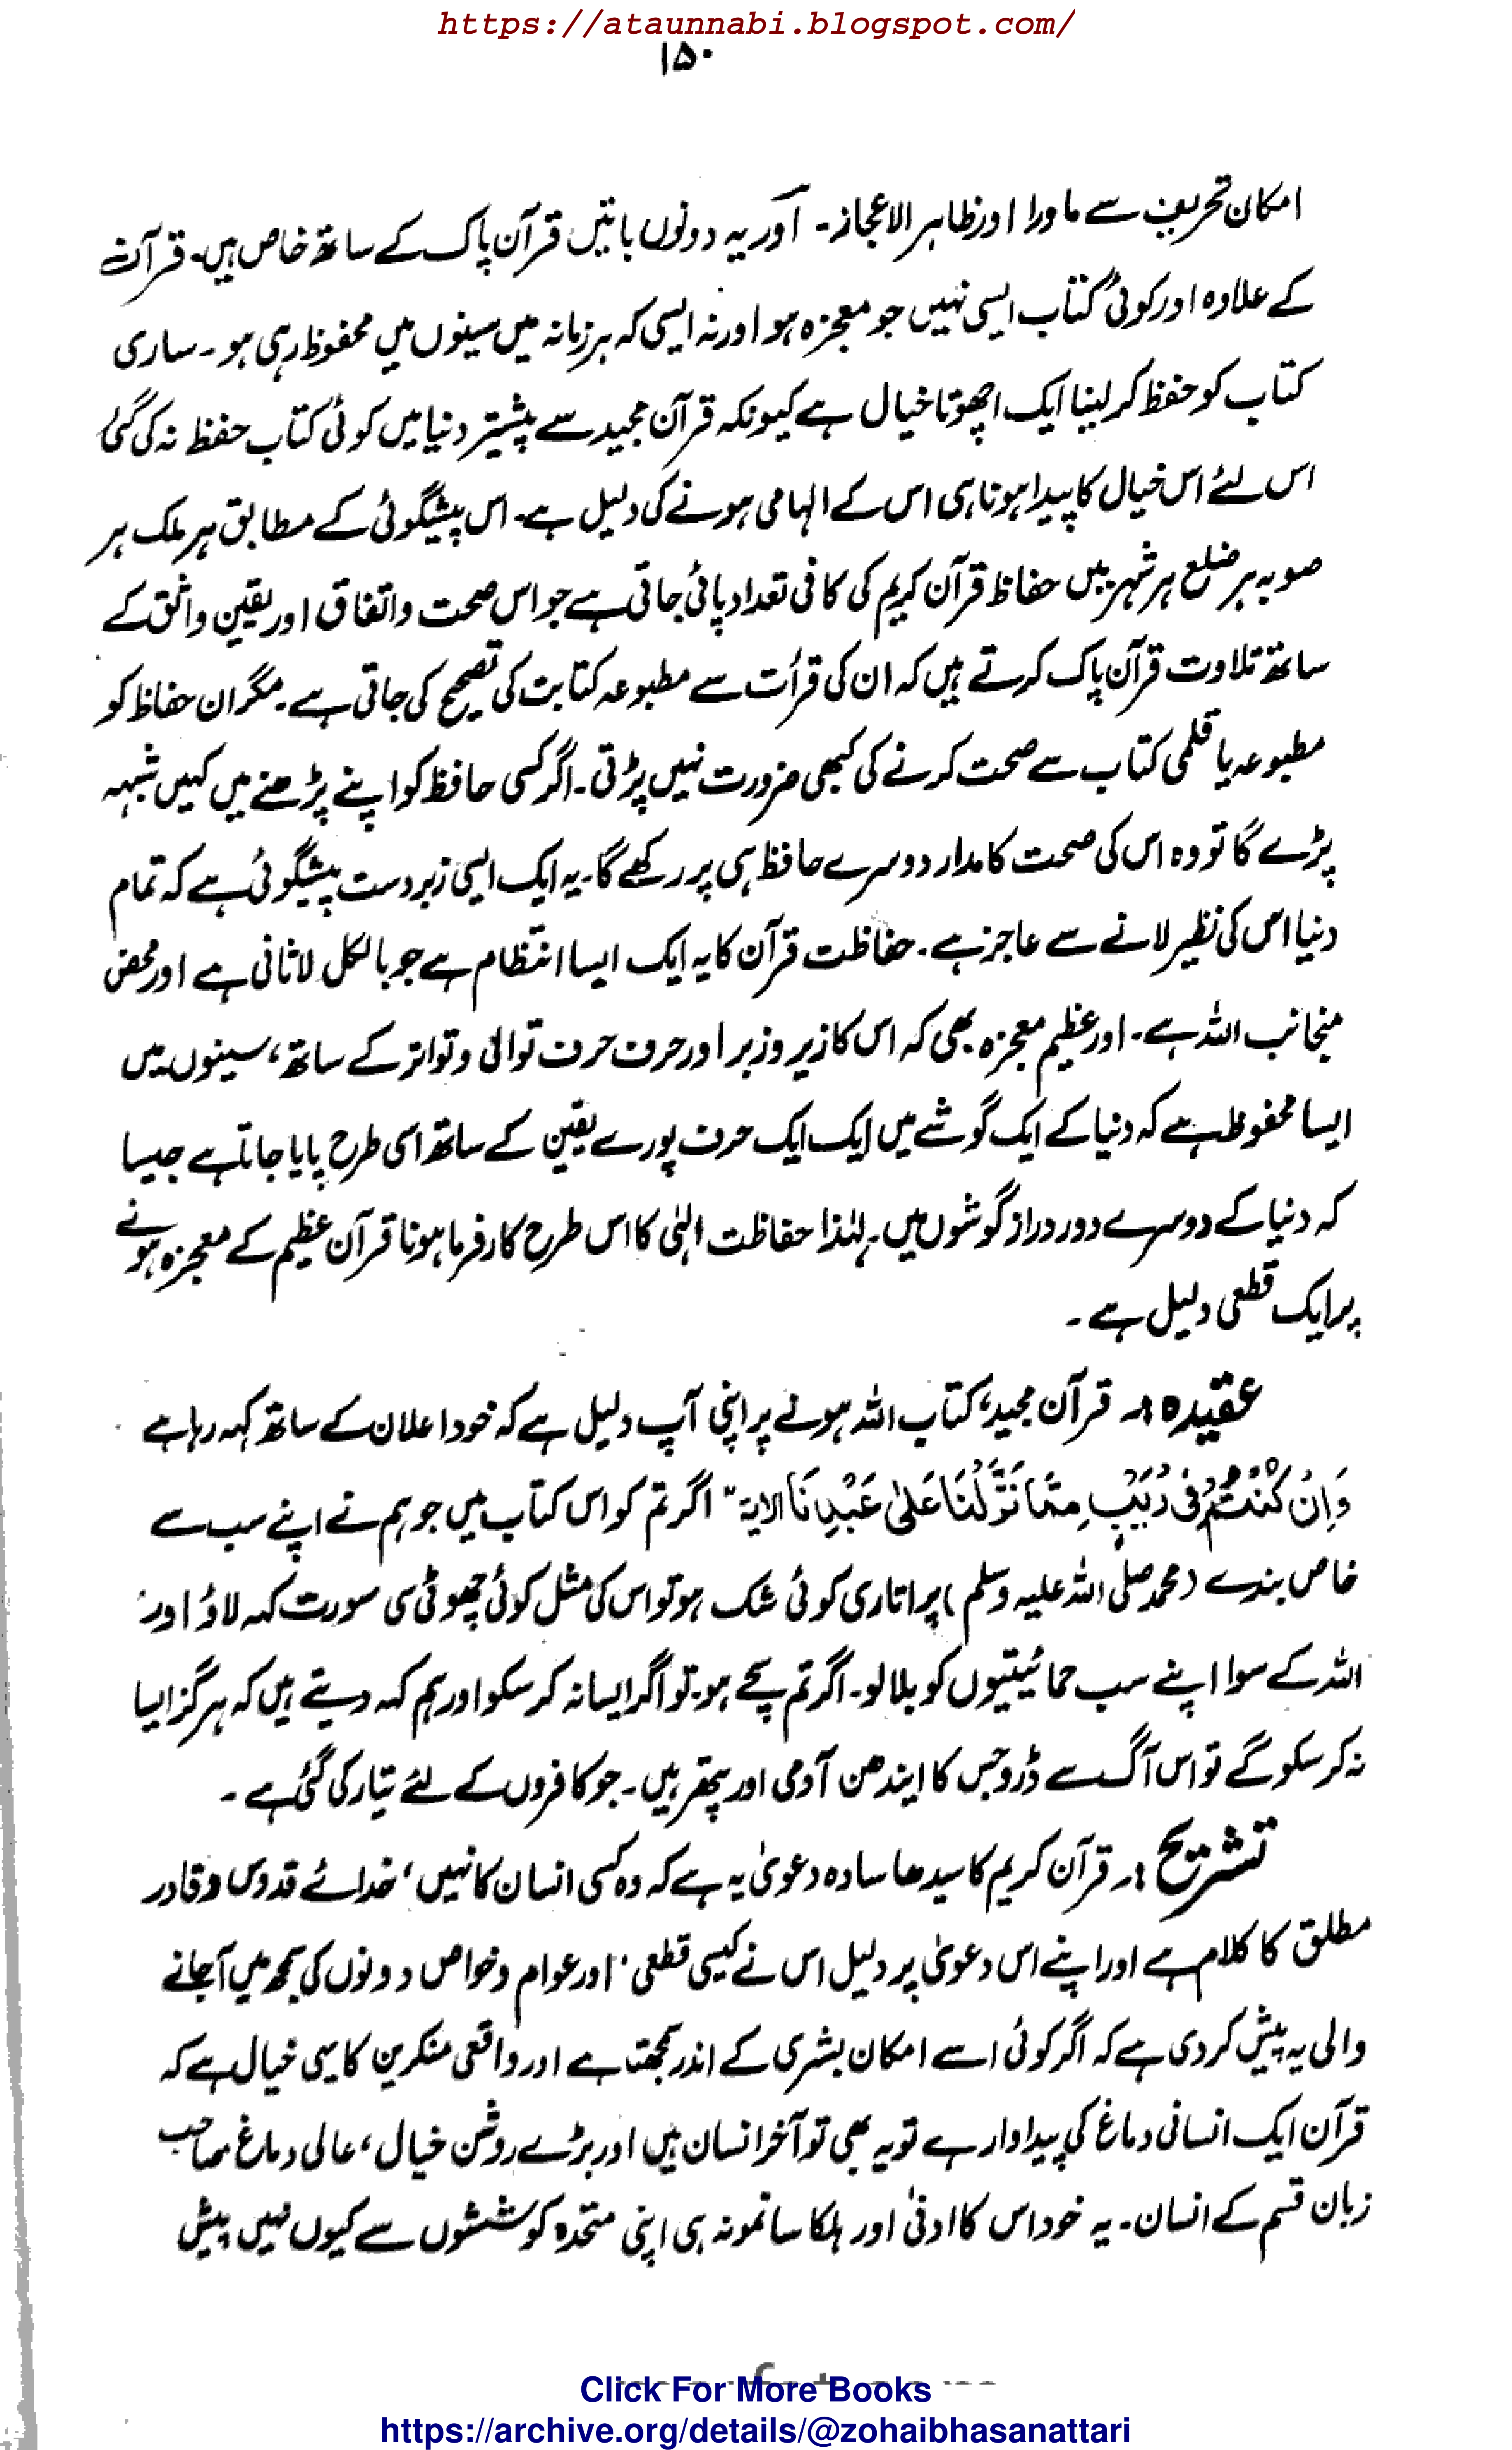 https://ataunnabi.blogspot.com/
۱۵۰
امکان تحریف سے ماورا اور ظاہر الاعجاز۔ اور یہ دونوں باتیں قرآن پاک کے ساتھ خاص ہیں۔ قرآن
کے علاوہ اور کوئی کتاب ایسی نہیں جو معجزہ ہو اور نہ ایسی کہ ہر زمانہ میں سینوں میں محفوظ رہی ہو۔ ساری
کتاب کو حفظ کر لینا ایک اچھوتا خیال ہے کیونکہ قرآن مجید سے پیشتر دنیا میں کوئی کتاب حفظ نہ کی گئی
اس لئے اس خیال کا پیدا ہونا ہی اس کے الہامی ہونے کی دلیل ہے۔ اس پیشگوئی کے مطابق ہر ملک ہر
صوبہ ہر ضلع ہر شہر میں حفاظ قرآن کریم کی کافی تعداد پائی جاتی ہے جو اس صحت واتفاق اور یقین واثق کے
ساتھ تلاوت قرآن پاک کرتے ہیں کہ ان کی قرأت سے مطبوعہ کتابت کی تصحیح کی جاتی ہے۔ مگر ان حفاظ کو
مطبوعہ یا قلمی کتاب سے صحت کرنے کی کبھی ضرورت نہیں پڑتی۔ اگر کسی حافظ کو اپنے پڑھنے میں کہیں شبہہ
پڑے گا تو وہ اس کی صحت کا مدار دوسرے حافظ ہی پر رکھے گا۔ یہ ایک ایسی زبردست پیشگوئی ہے کہ تمام
دنیا اس کی نظیر لانے سے عاجز ہے۔ حفاظت قرآن کا یہ ایک ایسا انتظام ہے جو بالکل لاثانی ہے اور محض
منجانب اللہ ہے۔ اور عظیم معجزہ بھی کہ اس کا زیر وزبر اور حرف حرف توالی وتواتر کے ساتھ، سینوں میں
ایسا محفوظ ہے کہ دنیا کے ایک گوشے میں ایک ایک حرف پورے یقین کے ساتھ اسی طرح پایا جاتا ہے جیسا
کہ دنیا کے دوسرے دور دراز گوشوں میں۔ لہٰذا حفاظت الٰہی کا اس طرح کارفرما ہونا قرآن عظیم کے معجزہ ہونے
پر ایک قطعی دلیل ہے۔
عقیدہ :۔ قرآن مجید، کتاب اللہ ہونے پر اپنی آپ دلیل ہے کہ خود اعلان کے ساتھ کہہ رہا ہے
وَاِنْ كُنْتُمْ فِیْ رَیْبٍ مِّمَّا نَزَّلْنَا عَلٰی عَبْدِنَا الایۃ" اگر تم کو اس کتاب میں جو ہم نے اپنے سب سے
خاص بندے (محمد صلی اللہ علیہ وسلم) پر اتاری کوئی شک ہو تو اس کی مثل کوئی چھوٹی سی سورت کہہ لاؤ اور
اللہ کے سوا اپنے سب حمائیتیوں کو بلا لو۔ اگر تم سچے ہو۔ تو اگر ایسا نہ کر سکو اور ہم کہہ دیتے ہیں کہ ہرگز ایسا
نہ کر سکو گے تو اس آگ سے ڈرو جس کا ایندھن آدمی اور پتھر ہیں۔ جو کافروں کے لئے تیار کی گئی ہے۔
تشریح :۔ قرآن کریم کا سیدھا سادہ دعویٰ یہ ہے کہ وہ کسی انسان کا نہیں، خدائے قدوس و قادر
مطلق کا کلام ہے اور اپنے اس دعویٰ پر دلیل اس نے کیسی قطعی، اور عوام وخواص دونوں کی سمجھ میں آ جانے
والی یہ پیش کر دی ہے کہ اگر کوئی اسے امکان بشری کے اندر سمجھتا ہے اور واقعی منکرین کا یہی خیال ہے کہ
قرآن ایک انسانی دماغ کی پیداوار ہے تو یہ بھی تو آخر انسان ہیں اور بڑے روشن خیال، عالی دماغ صاحب
زبان قسم کے انسان۔ یہ خود اس کا ادنیٰ اور ہلکا سا نمونہ ہی اپنی متحدہ کوششوں سے کیوں نہیں پیش
Click For More Books
https://archive.org/details/@zohaibhasanattari